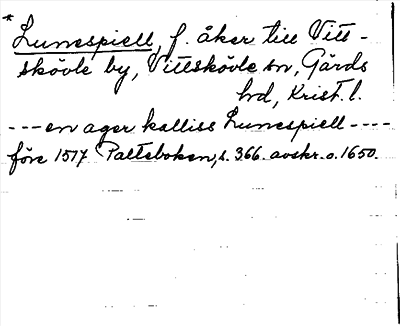 * Lunespiell, f. åker till Vitt-
skövle by, Vittskövle sn, Gärds
hd, Krist. l.
--- en ager kalliss Lunespiell ----
före 1517 Palteboken, s. 366. avskr. o. 1650.